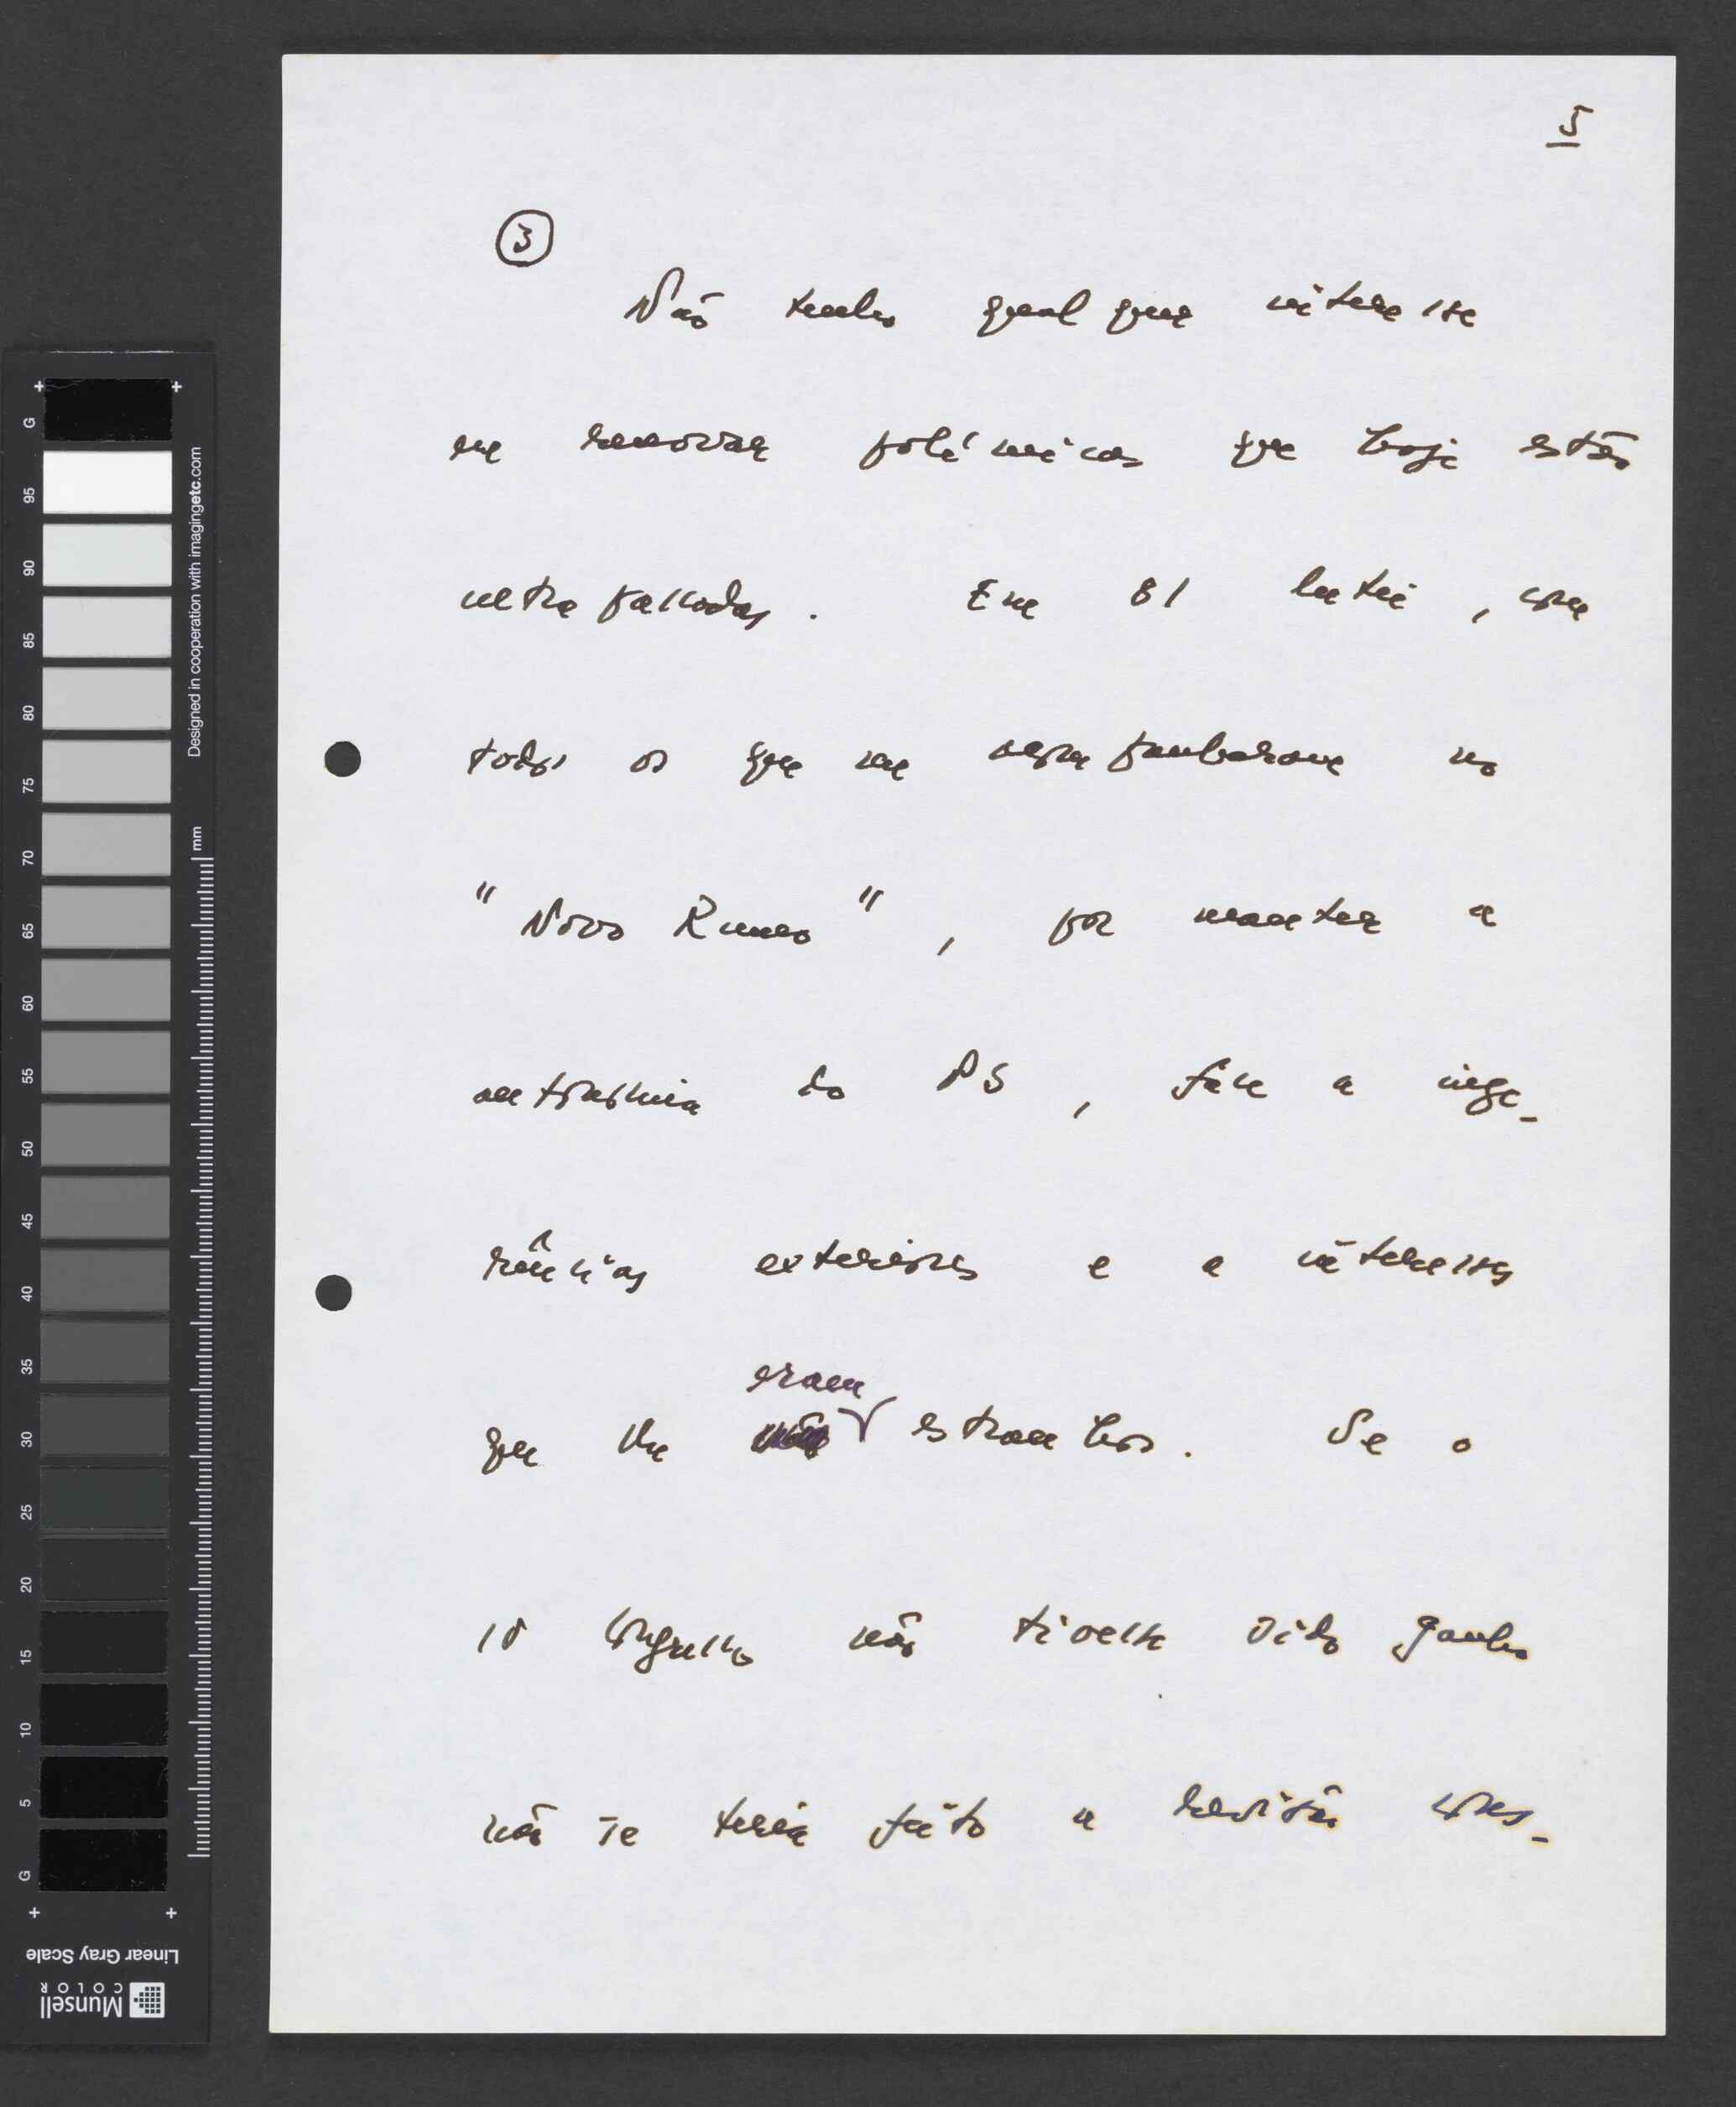 5
3
Não tenho qualquer interesse
em renovar polémicas que hoje estão
ultrapassadas. Em 81 lutei, com
todos os que me acompanharam no
"Novo Rumo", por manter a
autonomia do PS, face a inge-
rências exteriores e a interesses
que lhe eram estranhos. Se o
IV Congresso não tivesse sido ganho
não se teria feito a revisão cons-
G
95
90
85
80
75
70
65
60
55
50
45
40
35
30
25
20
15
10
5
G
Designed in cooperation with imagingetc.com
mm
Linear Gray Scale
Munsell
COLOR